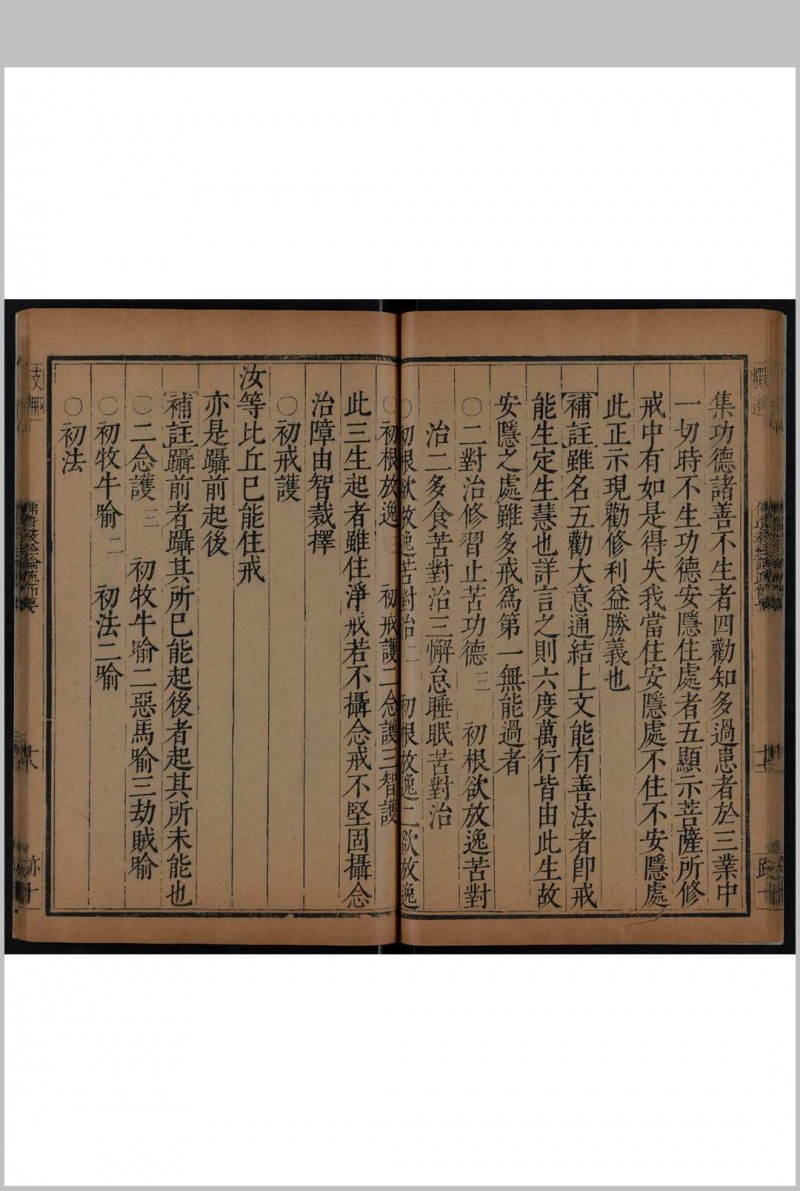 集功德諸善不生者四勸知多過患者於三業中
一切時不生功德安隱住處者五顯示菩薩所修
戒中有如是得失我當住安隱處不住不安隱處
此正示現勸修利益勝義也
補註雖名五勸大意通結上文能有善法者卽戒
能生定生慧也詳言之則六度萬行皆由此生故
安隱之處雖多戒爲第一無能過者
○二對治修習止苦功德三 初根欲放逸苦對
治二多食苦對治三懈怠睡眠苦對治
○初根欲放逸苦對治二 初根放逸二欲放逸
○初根放逸三 初戒護二念護三智護
此三生起者雖住淨戒若不攝念戒不堅固攝念
治障由智裁擇
○初戒護
汝等比丘已能住戒
亦是躡前起後
補註躡前者躡其所已能起後者起其所未能也
○二念護三 初牧牛喻二惡馬喻三劫賊喻
○初牧牛喻二 初法二喻
○初法